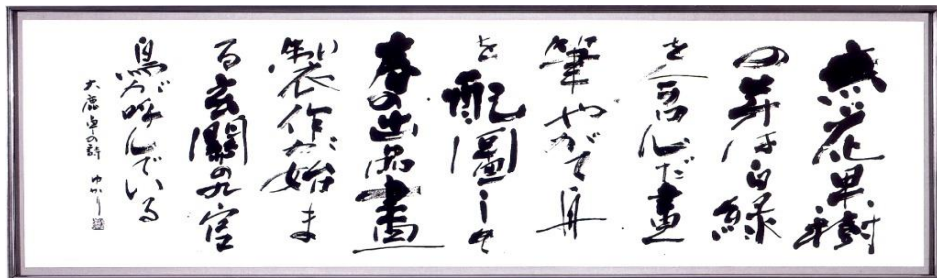 無花果樹
の芽は白緑
を含んだ畫
筆やがて舟
を配圖して
春の出品畫
製作が始ま
る玄關の九官
鳥が呼んでいる
大鹿卓の詩 ゆかり